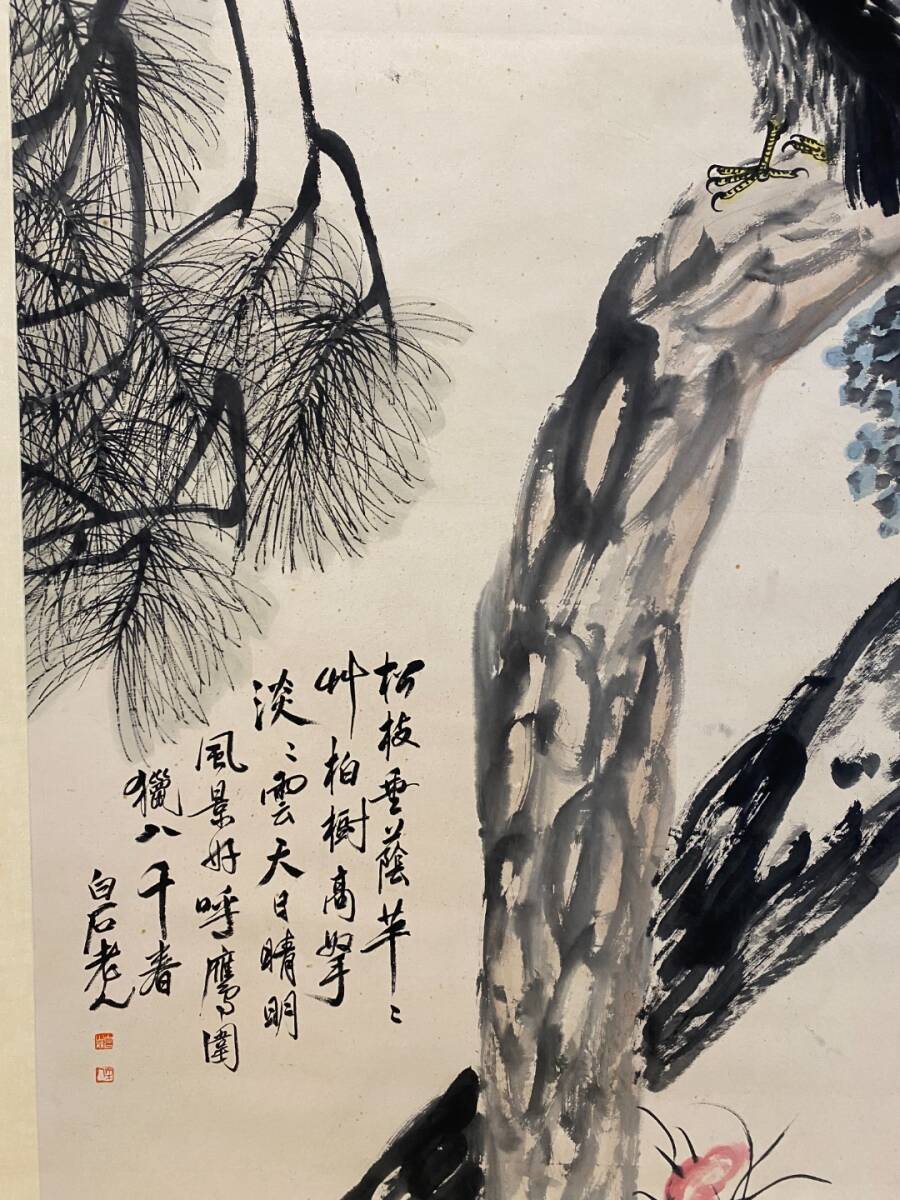 松枝垂蔭苹〻
艸柏樹高拏
淡〻雲天日晴明
風景好呼鷹圍
獵八千春
白石老人